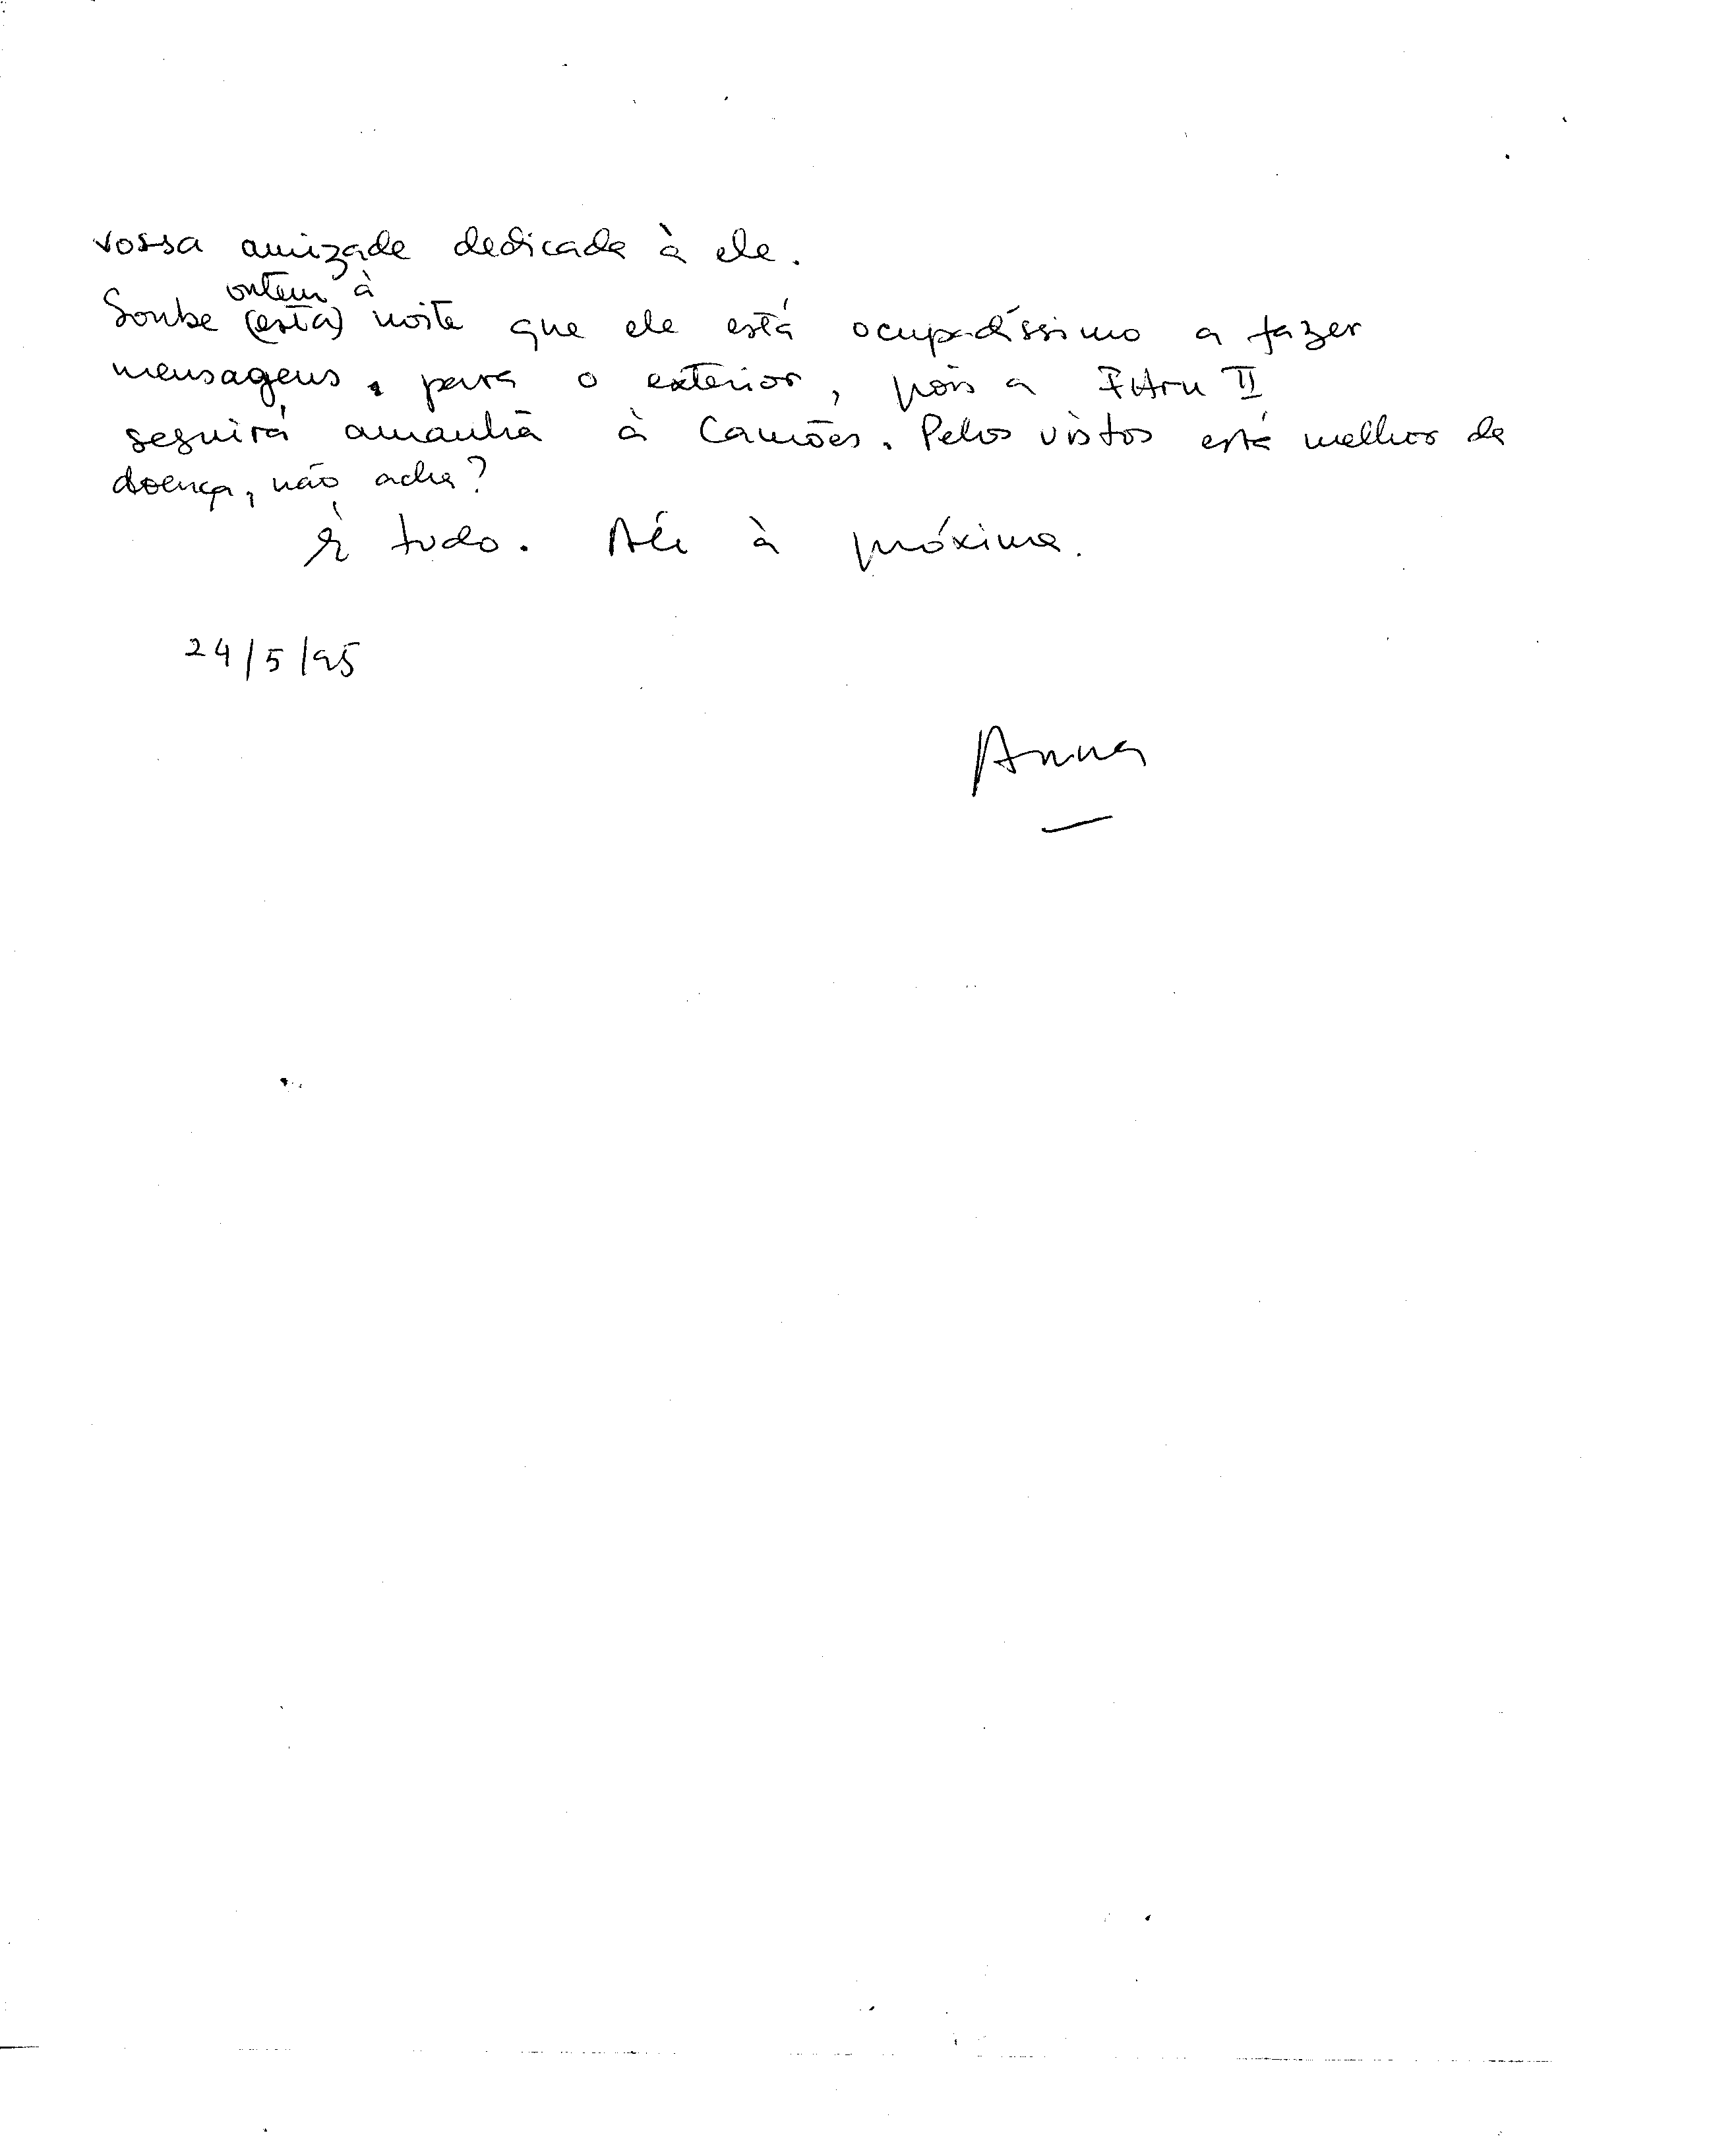 vossa amizade dedicada à ele.
ontem à
Soube (esta) noite que ele está ocupadíssimo a fazer
mensagens, para o exterior, pois a
seguirá amanhã à Camões. Pelos vistos está melhor da
doença, não acha?
É tudo. Até à próxima.
24/5/95
Anna